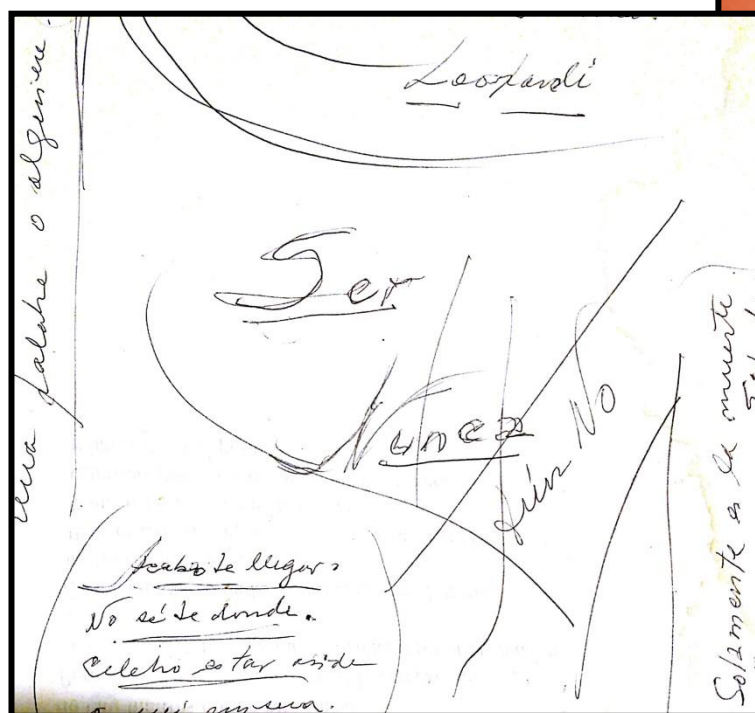 una palabra o alguien
Leopardi
Ser
Nunca
Aún No
Acabo de llegar.
No sé de donde.
Celebro estar
Solamente es la muerte